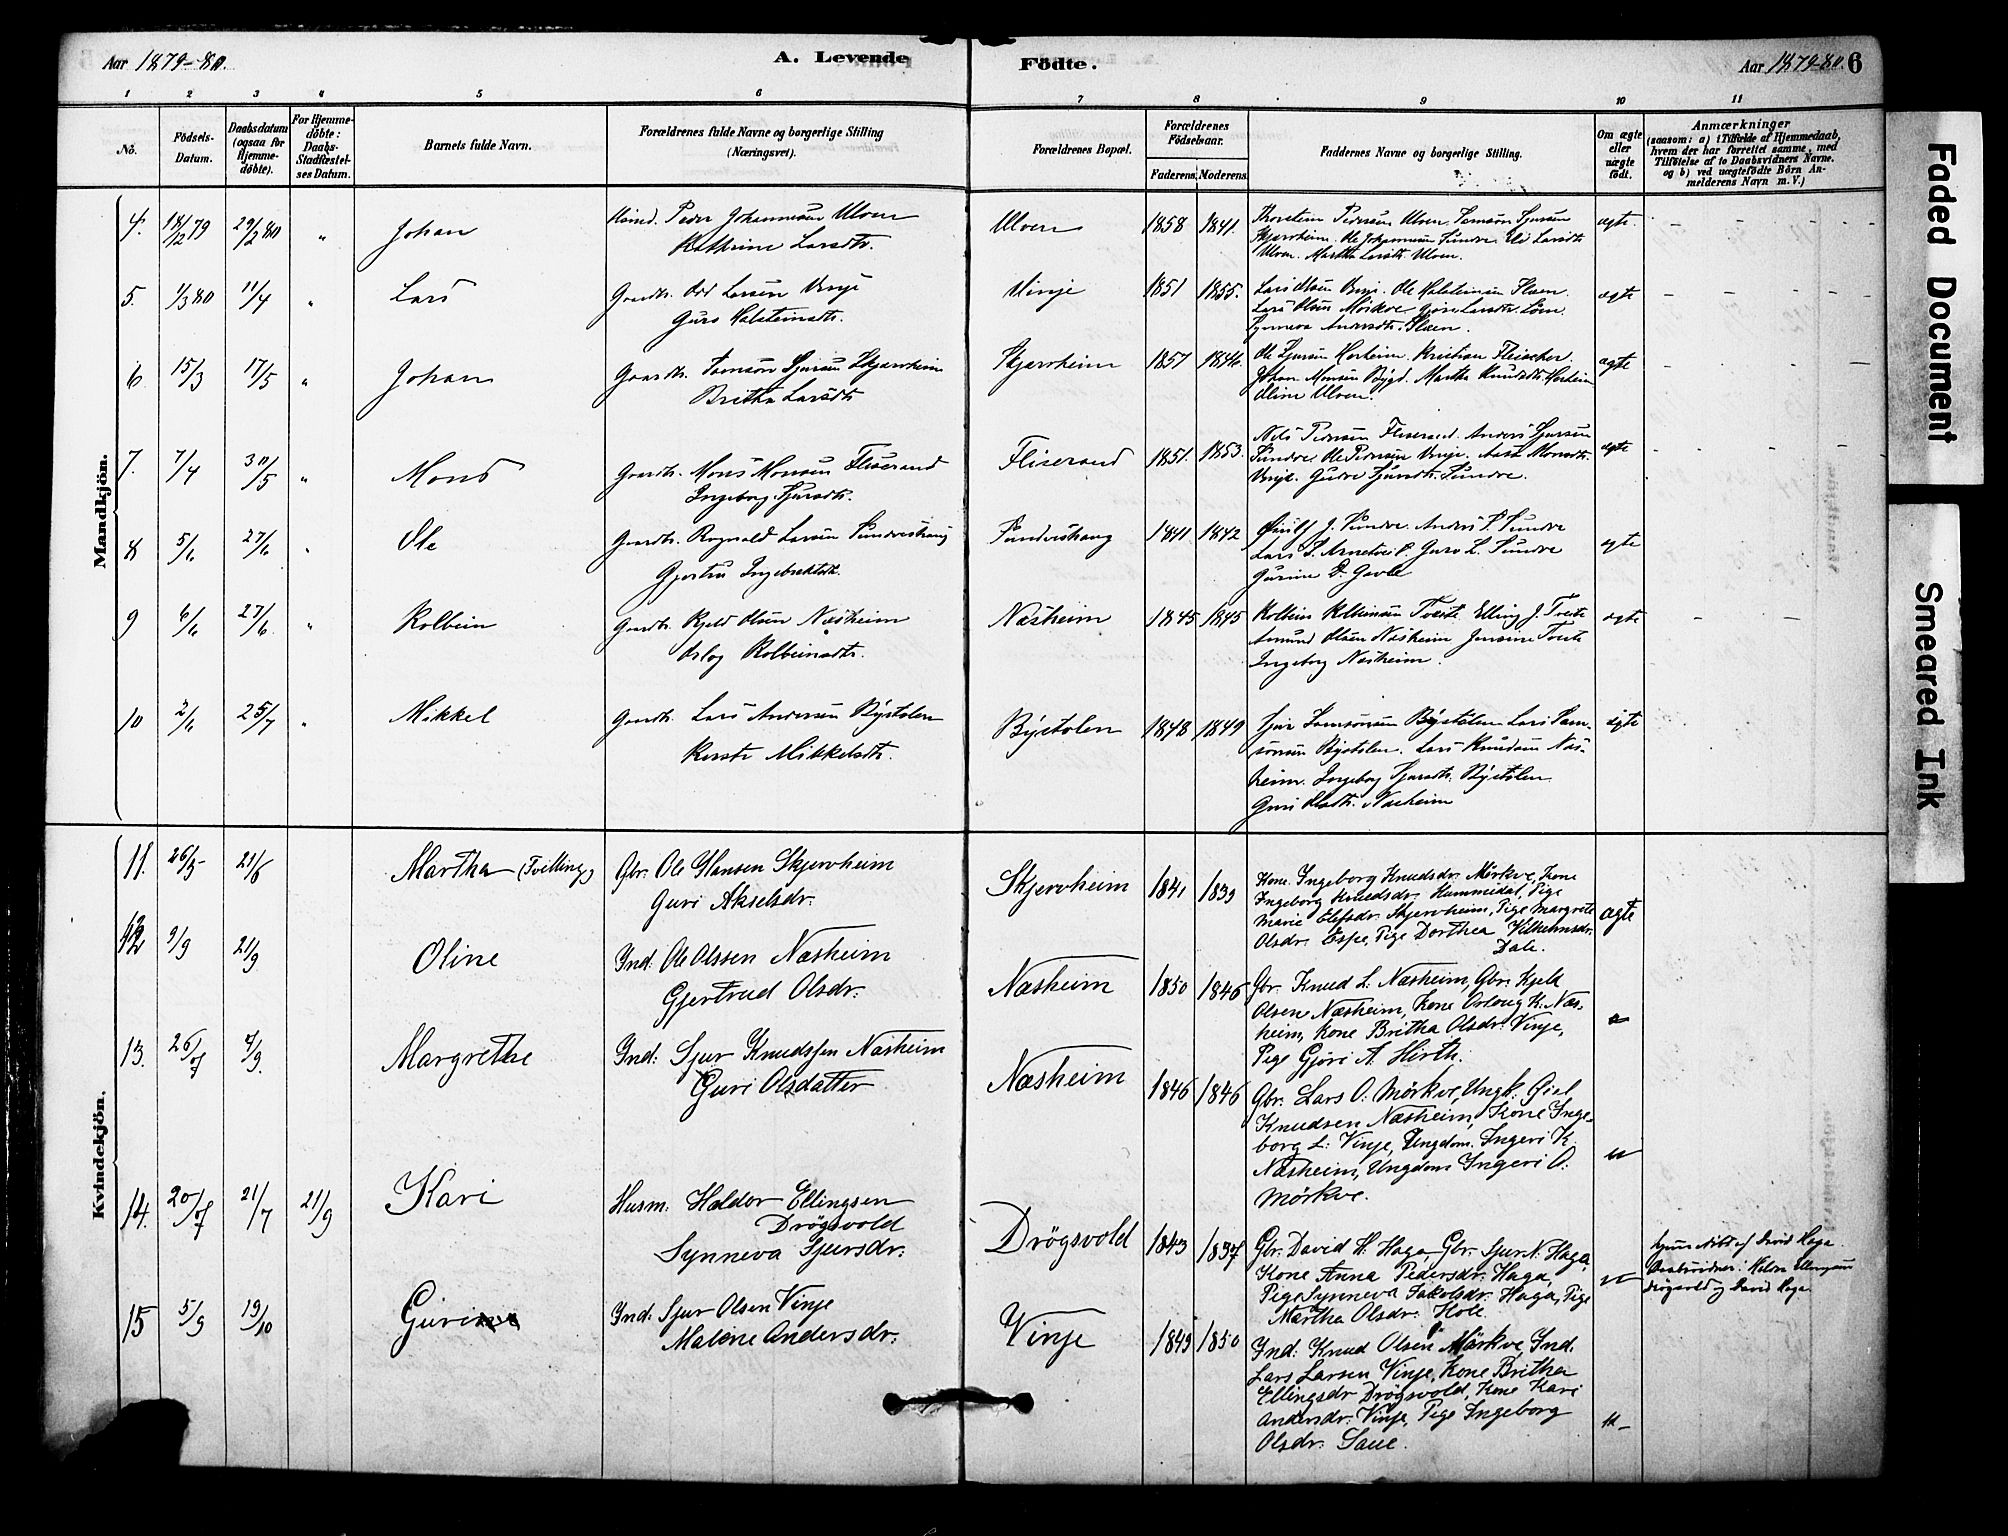 Aar 1879-80.
A. Levende
Fødte.
Aar 1879-80. 6
1 2 3 4 5 6 7 8 9 10 11
No.
Födsels-
Datum.
Daabsdatum
(ogsaa for
Hjemme-
døbte).
For Hjemme-
døbte:
Daabs-
Stadfæstel-
ses Datum.
Barnets fulde Navn.
Forældrenes fulde Navne og borgerlige Stilling
(Næringsvei).
Forældrenes Bopæl.
Forældrenes
Födselsaar.
Faderens. Moderens.
Faddernes Navne og borgerlige Stilling.
Om ægte
eller
uægte
født.
Anmærkninger
(saasom: a) i Tilfælde af Hjemmedaab,
hvem der har forrettet samme, med
Tilföielse af to Daabsvidners Navne.
og b) ved uægtefödte Börn An-
melderens Navn m. V.)
Mandkjön.
4. 18/12 79 29/2 80 " Johan
Peder Johannesen Ulven
Kathrine Larsdtr.
Ulven 1858 1841.
Thorstein Pedersen Ulven, Samson Sjursen
Skjerveheim, Ole Johannesen Sundve, Larsdtr
Ulven. Martha Larsdtr Ulven.
ægte.
5. 1/3 80 11/4 " Lars
Gaardbr. Odd Larsen Vinje
Guro Halsteinsdtr.
Vinje 1851 1855.
Lars Olsen Vinje. Ole Halsteinsen Flaen
Lars Olsen Mörkve
Synneva Andersdtr. Flaen.
ægte
6. 15/3 17/5 " Johan
Gaardbr. Samson Sjursen Skjerveheim
Britha Larsdtr
Skjerveheim 1857 1846.
Ole Sjursen Herheim. Kristian Fleischer.
Johan Monsen Bygd. Martha Knudsdtr Herheim
Oline Ulven.
ægte
7. 7/4 30/5 " Mons
Gaardbr. Mons Monsen Fliserand
Ingeborg Sjursdtr.
Fliserand 1851. 1853.
Nils Pedersen Fliserand. Anders Sjursen
Sundve. Ole Pedersen Vinje. Monsdtr.
Vinje. Gudve Sjursdtr. Sundve.
ægte
8 5/6 27/6 " Ole
Gaardbr. Rognald Larsen Sundveshaug
Gjertru Ingebrektsdtr.
Sundershaug 1841 1842
J. Sundve. Anders S. Sundve
Lars S. Guro L. Sundve
Gurine D. Gavle
ægte
9 6/6 27/6. " Kolbein
Gaardbr. Kjeld Olsen Næsheim
Aslog Kolbeinsdtr.
Næsheim 1845 1845
Kolbein Kolbeinsen Tveite Elling J. Tveite
Amund Olsen Næsheim Jensine Tveite
Ingeborg Næsheim.
ægte
10 2/6 25/7 " Mikkel
Gaardbr. Lars Andersen Bystølen
Mikkelsdtr.
Bystølen 1848 1849
Sjur Samsonsen Bystølen Lars Sam-
sonsen Bystølen. Lars Knudsen Næs-
heim. Ingeborg Sjursdtr. Bystølen
Guri Olsdtr. Næsheim
ægte
Kvindekjön.
11. 26/5 21/6 Martha (Tvilling)
Gbr: Ole Hansen Skjerveheim
Guri Akselsdr.
Skjervheim 1841 1839
Kone Ingeborg Knudsdr. Mörkve, Kone
Ingeborg Knudsdr. Hummedal, Pige
Marie Elefsdr. Skjervheim, Pige Margrete
Olsdr. Espe, Pige Dorthea Vilhelmsdr.
Dale.
ægte
12 9/9 21/9 Oline
Ind: Ole Olssen Næsheim
Gjertrud Olsdr.
Næsheim 1850 1846
Gbr. Knud L: Næsheim, Gbr. Kjeld
Olsen Næsheim, Kone Oslaug K. Næs-
heim, Kone Britha Olsdr. Vinje,
Pige Gjöri A. Hirth.
13. 26/7 7/9. Margrethe
Ind: Sjur Knudssen Næsheim
Guri Olsdatter
Næsheim 1846 1846
Gbr. Lars O: Mörkve, Ungk: Giel
Knudsen Næsheim, Kone Inge-
borg L: Vinje, Ungdom. Ingeri K.
Næsheim, Ungdom Ingeri O.
Mörkve.
14. 20/7 21/7 21/9 Kari
Husm: Haldor Ellingsen
Drögsvold
Synneva Sjursdr.
Drögsvold 1843 1837
Gbr. David H: Haga, Gbr. Sjur N. Haga,
Kone Anna Pedersdr. Haga,
Pige Synneva Jakobsdr. Haga, Pige
Martha Olsdr. Hole.
Hjemmedöbt af David Haga.
Daabsvidner: Haldor Ellingsen
Drögsvold og David Haga
15 5/9 19/10 Gurine
Ind: Sjur Olsen Vinje
Malene Andersdr.
Vinje 1849 1850
Ind: Knud Olsen Mörkve, Ind.
Lars Larsen Vinje, Kone Britha
Ellingsdr Drögsvold, Kone Kari
Andersdr. Vinje, Pige Ingeborg
Olsdr. Saue.
Faded Document
Smeared Ink